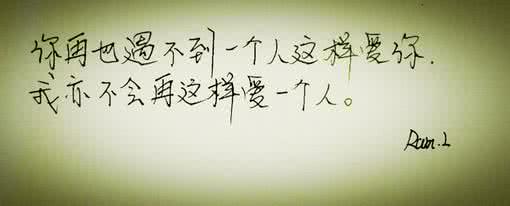 你再也遇不到一个人这样爱你.
我亦不会再这样爱一个人。